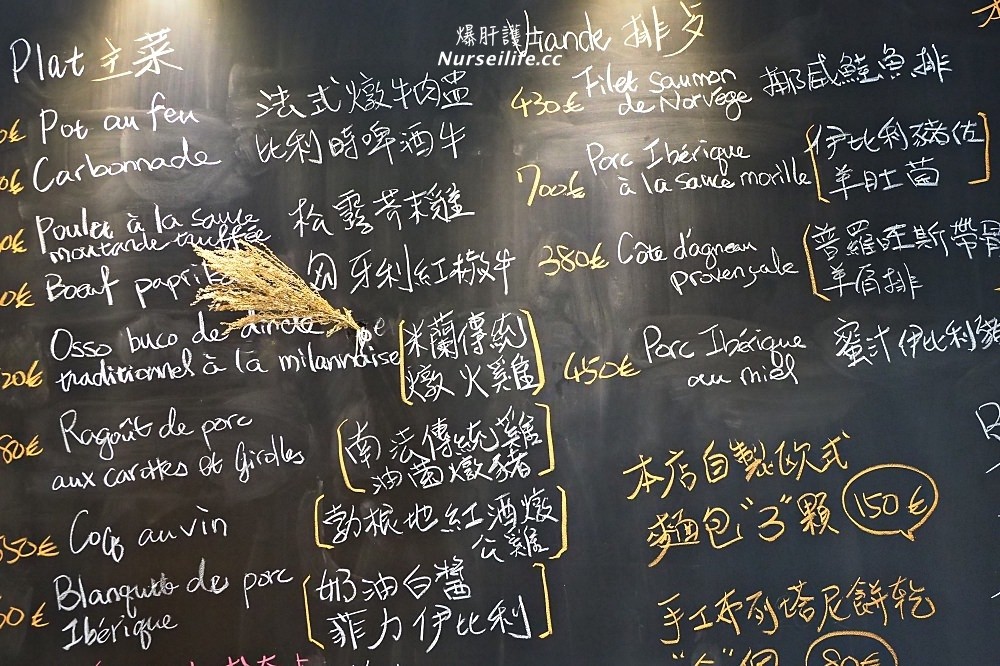 爆肝護
Nurseilife.cc
Plat 主菜
Pot au feu 法式燉牛肉盅
Carbonnade 比利時啤酒牛
Poulet à la sauce
moutarde truffée 松露芥末雞
Boeuf 匈牙利紅椒牛
Osso buco de
traditionnel à la milannaise
米蘭傳統
燉火雞
Ragoût de porc
aux carottes et Girolles
南法傳統雞
油菌燉豬
550€ Coq au vin
勃根地紅酒燉
公雞
Blanquette de porc
Ibérique
奶油白醬
菲力伊比利
排
430€ Filet saumon
de Norvège 挪威鮭魚排
700€ Porc Ibérique
à la sauce morille
伊比利豬佐
羊肚菌
380€ Côte d'agneau
provençale
普羅旺斯帶骨
羊肩排
450€ Porc Ibérique
au miel
蜜汁伊比利豬
本店自製歐式
麵包"3"顆 150€
手工布列塔尼餅乾
80€